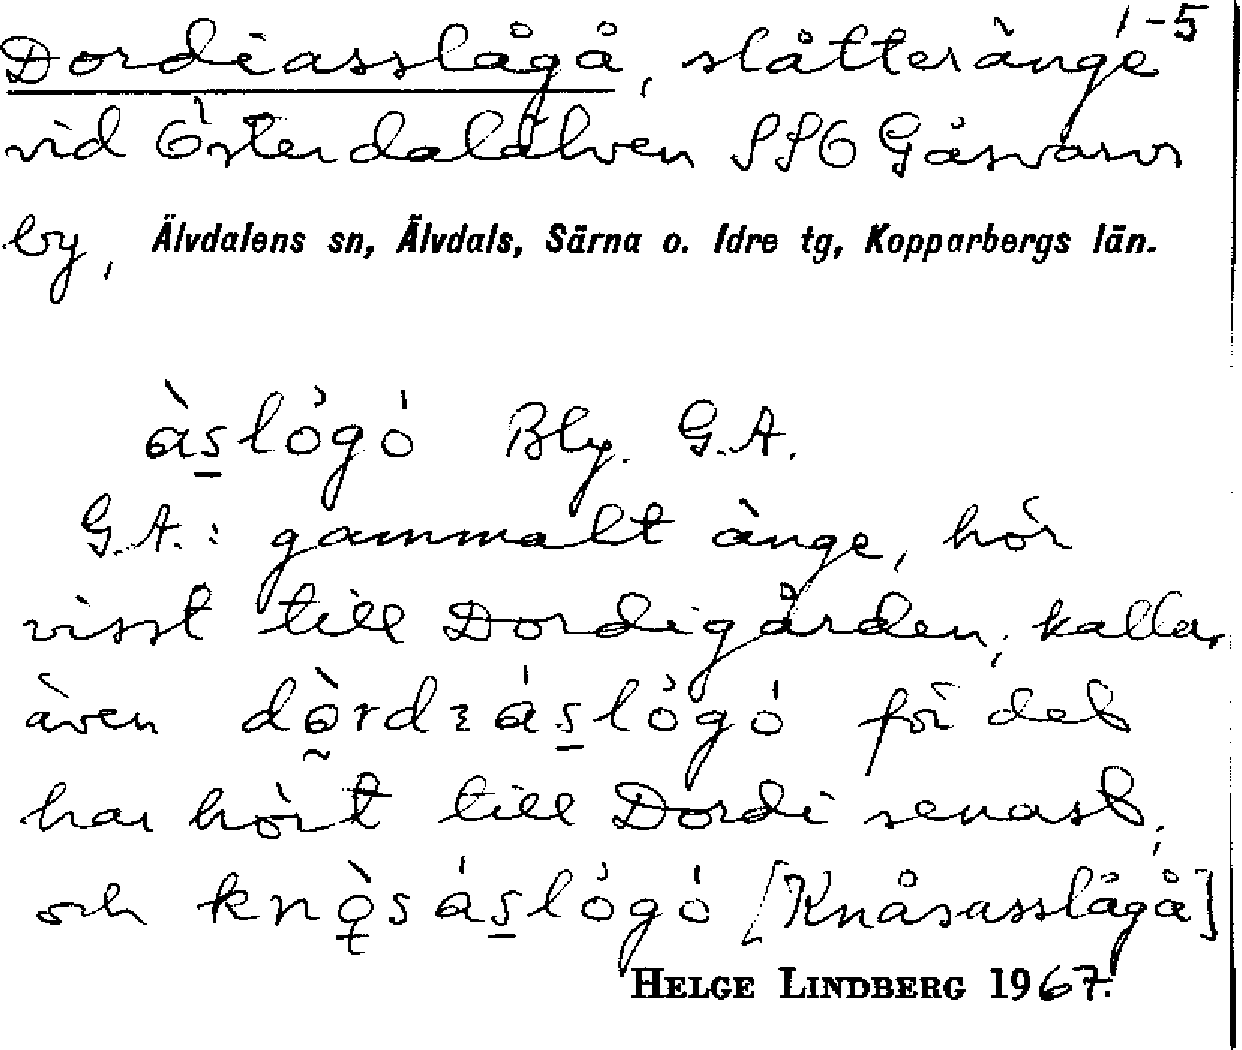 1-5
Dordiasslågå, slåtteränge
vid Österdalälven SSO Gåsvarvs
by, Älvdalens sn, Älvdals, Särna o. Idre tg, Kopparbergs län.
àslògó Bly. G.A.
G.A.: gammalt änge, hör
visst till Dordigården; kallar
även dòrdɪáslògó för det
har hört till Dordi senast;
och knǫ̀sáslògó [Knåsasslågå]
HELGE LINDBERG 1967.